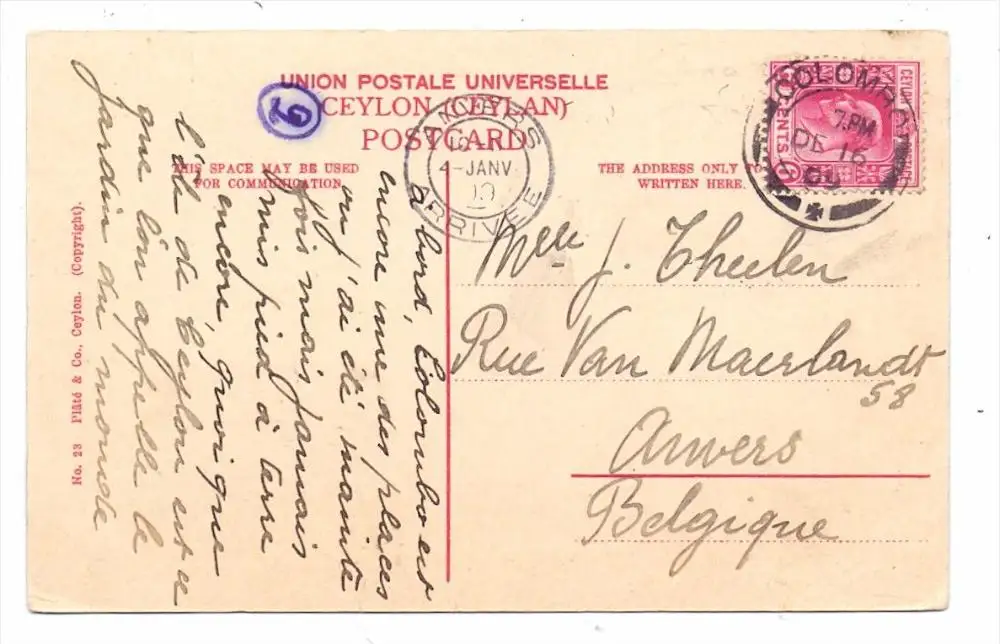 UNION POSTALE UNIVERSELLE
CEYLON (CEYLAN)
POSTCARD
THIS SPACE MAY BE USED
FOR COMMUNICATION.
THE ADDRESS ONLY TO
WRITTEN HERE.
No. 23 Plâté & Co., Ceylon. (Copyright).
à bord, Colombo est
encore une des places
où j'ai été mainte
fois mais jamais
mis pied à terre
encore, quoique
l'île de Ceylon est ce
que l'on appelle le
jardin du monde
Melle J. Theelen
Rue Van Maerlandt
58
Anvers
Belgique
ANVERS
4-JANV
10
ARRIVÉE
COLOMBO
7.PM
DE 16
09
CEYLON POSTAGE
CENTS 6